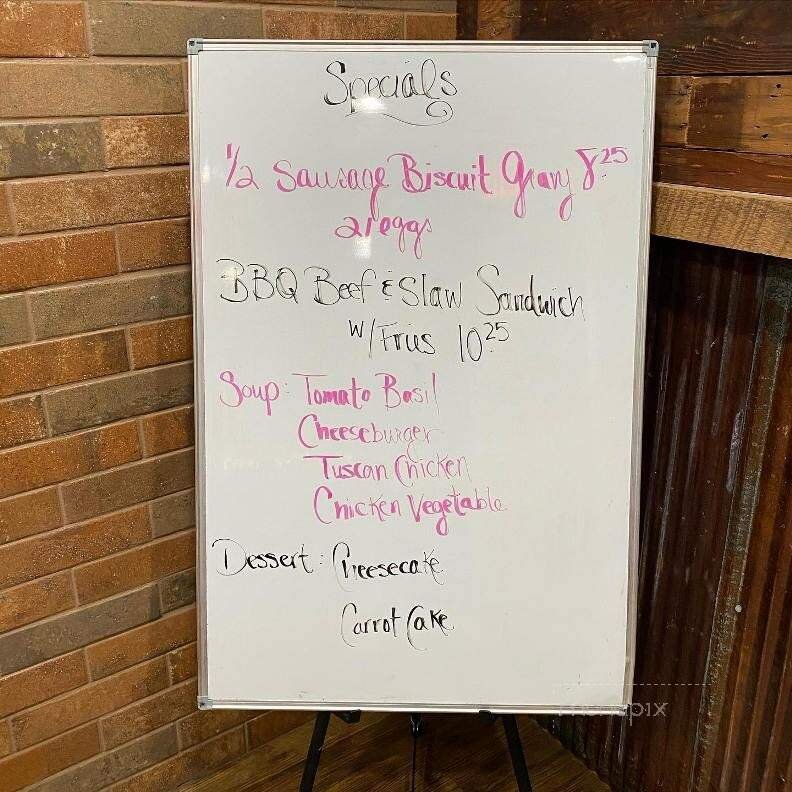 Specials
1/2 Sausage Biscuit Gravy 8.25
2 eggs
BBQ Beef & Slaw Sandwich
w/Fries 10.25
Soup: Tomato Basil
Cheeseburger
Tuscan Chicken
Chicken Vegetable
Dessert: Cheesecake
Carrot Cake